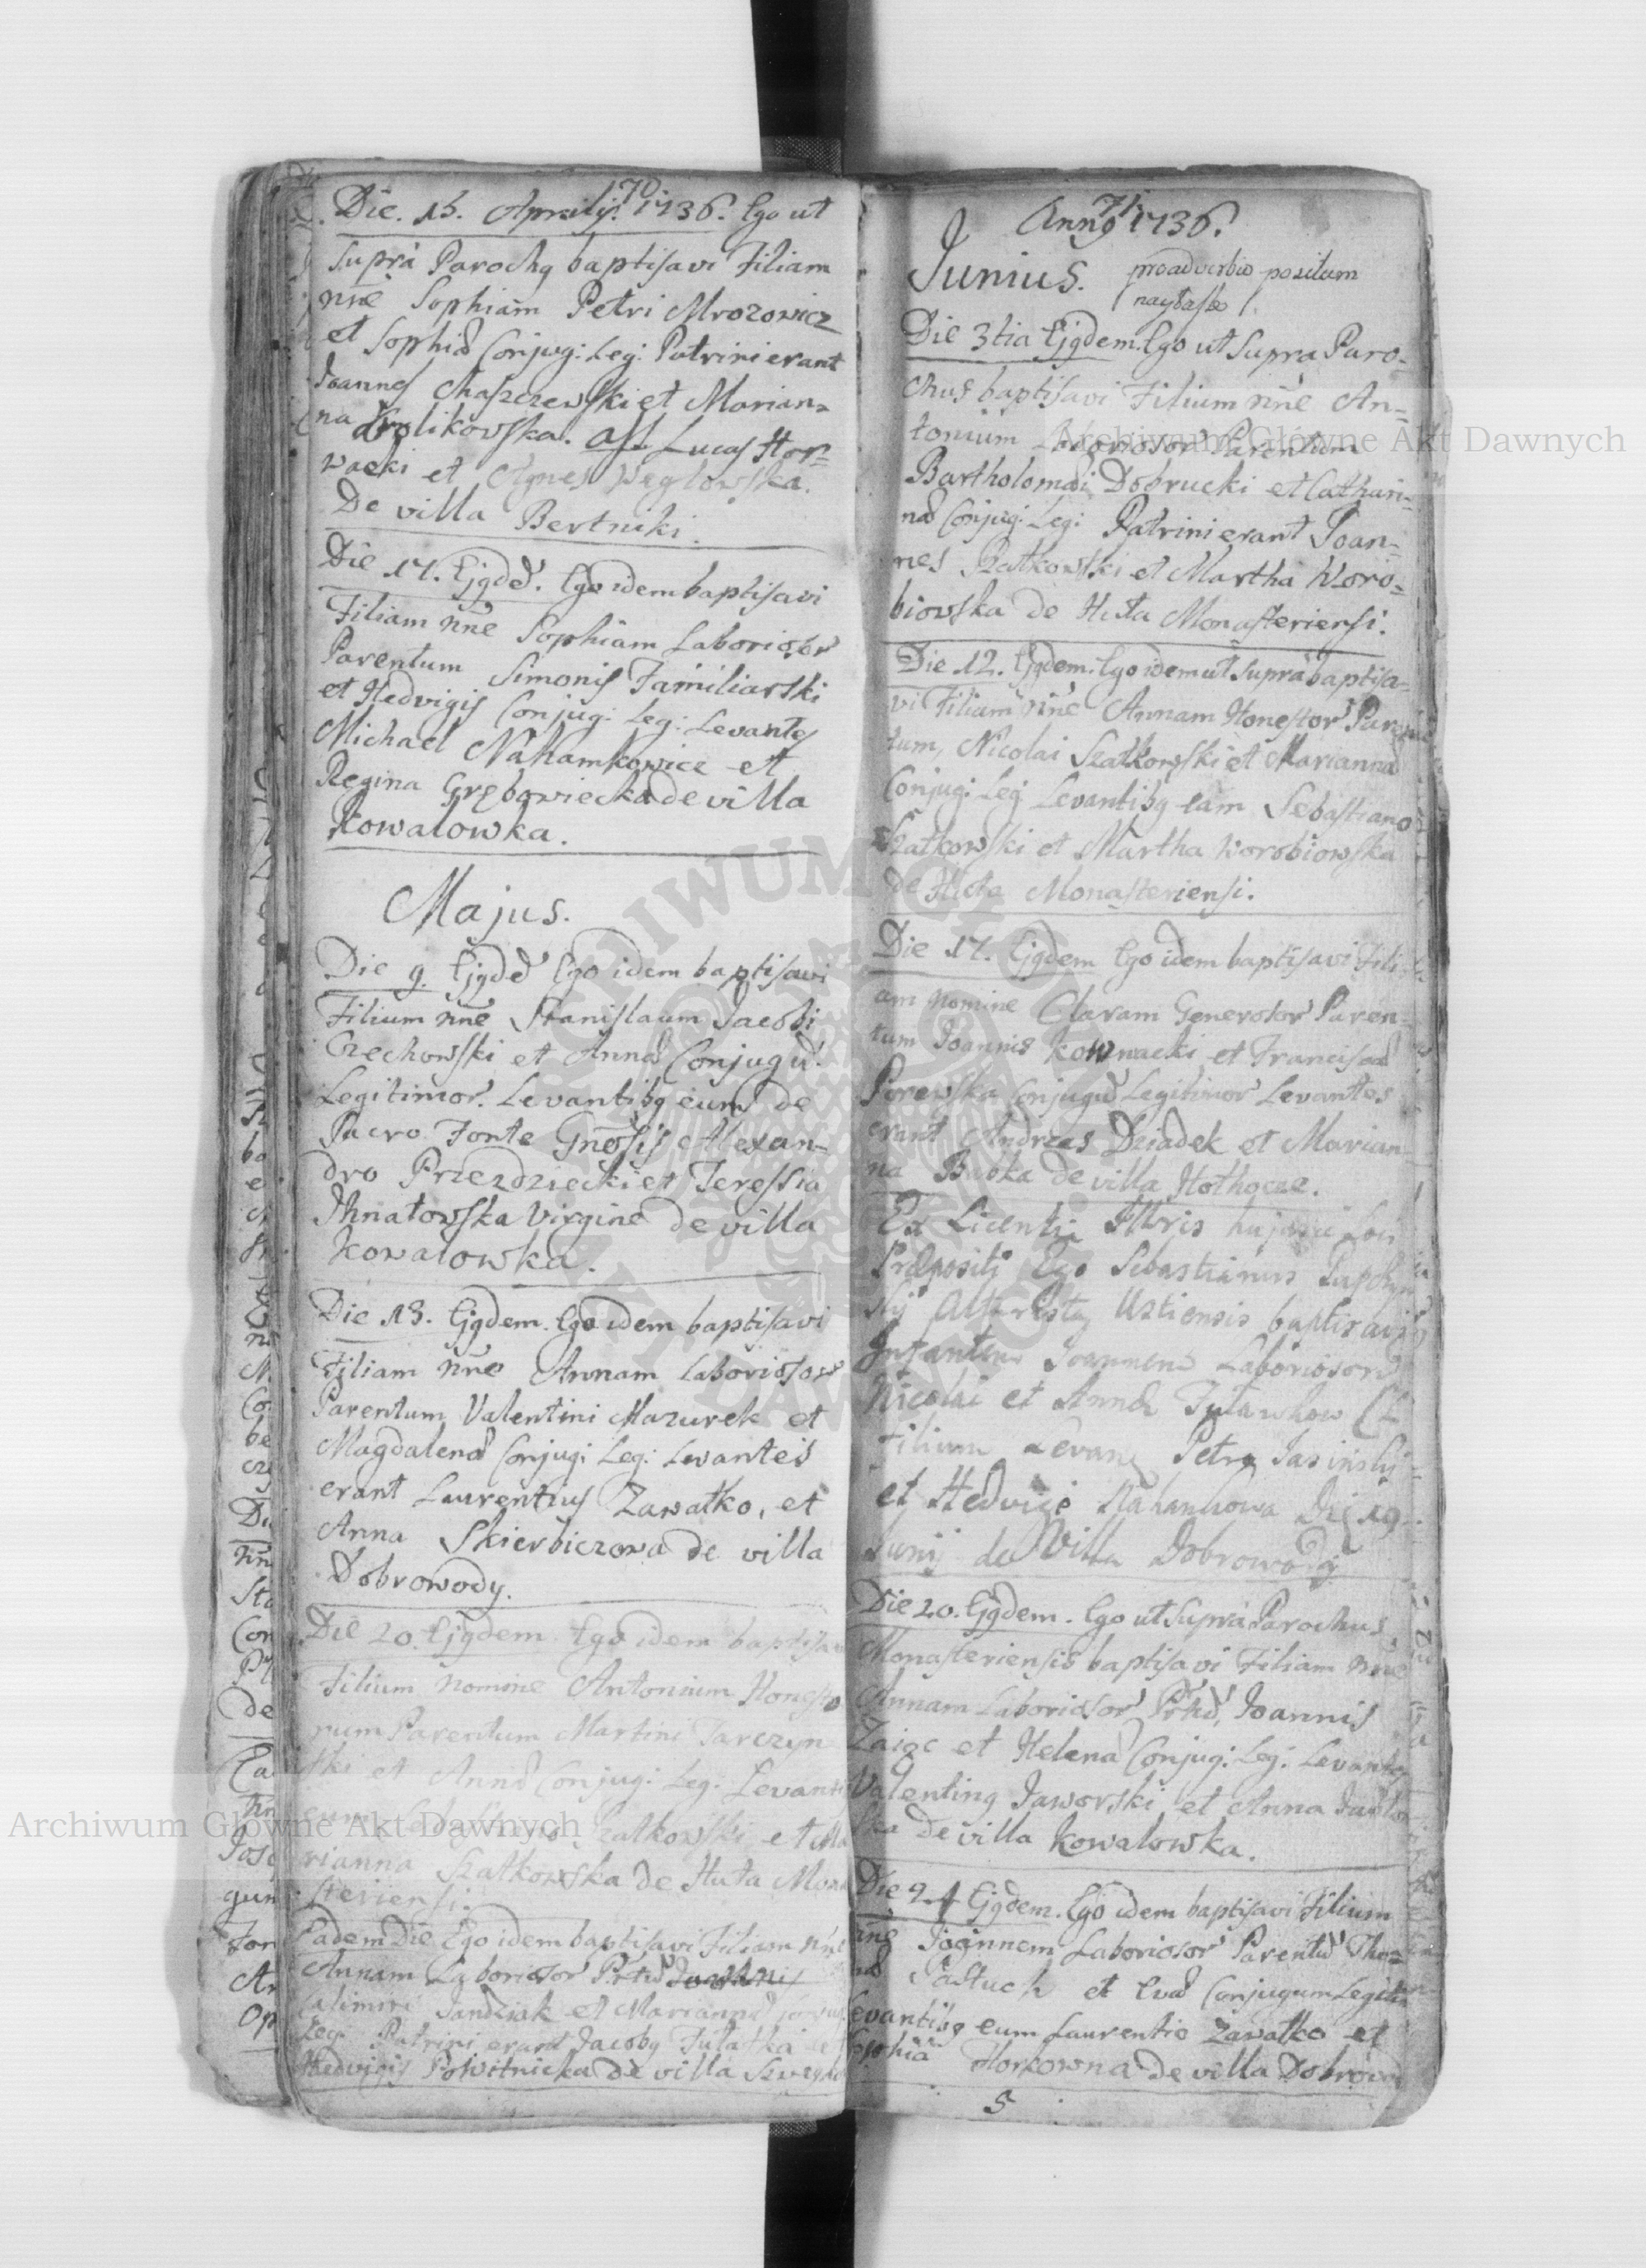 70
Die. 15. Aprilij. 1736. Ego ut
supra Parochq baptisavi Filiam
nne Sophiam Petri Mrozowicz
et Sophiæ Conjug: Leg: Patrini erant
Joannes Chaszczewski et Marian=
na Krolikowska. Ass. Lucas Hor=
wacki et Agnes Węglowska.
De villa Bertniki.
Die 17. Ejgdē. Ego idem baptisavi
Filiam nne Sophiam Laboriosor
Parentum Simonis Familiarski
et Hedvigis Conjug: Leg: Levantes
Michael Nahamkowicz et
Regina Grębowiecka de villa
Kowalowka.
Majus.
Die 9. Ejgdē Ego idem baptisavi
Filium nne Stanislaum Jacobi
Czechowski et Annæ Conjugū
Legitimor. Levantibq eum de
Sacro Fonte Gnosis Alexan=
dro Przezdziecki et Teressia
Ihnatowska Virgine de villa
Kowalowka.
Die 13. Ejgdem. Ego idem baptisavi
Filiam nne Annam Laboriosor
Parentum Valentini Mazurek et
Magdalenæ Conjug: Leg: Levantes
erant Laurentius Zawatko, et
Anna Skierbiczowa de villa
Dobrowody.
Die 20. Ejgdem Ego idem baptisavi
Filium nomine Antonium Honesto
rum Parentum Martini Tarczyn
ski et Annæ Conjug: Leg: Levanti
eum Szatkowski et Ma
rianna Szatkowska de Huta Mona
steriensi.
Eadem Die Ego idem baptisavi Filiam nne
Annam Laboriosor Prtū
Casimiri Jandziak et Mariannæ Conjug
Leg: Patrini erant Jacobq Futatka et
Hedvigis Powitnicka de villa
71
Anno 1736.
Junius. pro adverbio positum
Die 3tia Ejgdem. Ego ut Supra Paro=
chus baptisavi Filium nne An=
tonium Laboriosor Parentum
Bartholomæi Dobrucki et Cathari=
næ Conjug: Leg: Patrini erant Joan=
nes Szatkowski et Martha Woro=
biowska de Huta Monasteriensi.
Die 12. Ejgdem. Ego idem ut Supra baptisa=
vi Filiam nne Annam Honestor Paren
tum, Nicolai Szatkowski et Mariannæ
Conjug: Leg Levantibq eam Sebastiano
Szatkowski et Martha Worobiowska
de Huta Monasteriensi.
Die 17. Ejgdem Ego idem baptisavi Fili
am nomine Claram Generosor Paren=
tum Joannis Kownacki et Franciscæ
Porewska Conjugū Legitimor Levantes
erant Andreas Dziadek et Marian=
na Bubka de villa Hothocze.
Ex Licentia Illtris hujusce Loci
Præpositi Ego Sebastianus
Altarista Ustiensis baptisavi
Infantem Joannem Laboriosor
Nicolai et Annæ
Filium Levans Petro Jasinsky
et Hedvige Nahankowa Die 19
Junij de Villa Dobrowody
Die 20. Ejgdem. Ego ut Supra Parochus
Monasteriensis baptisavi Filiam nne
Annam Laboriosor Prtū, Joannis
Zaiąc et Helenæ Conjug: Leg: Levantes
Valentinq Jaworski et Anna
ska de villa Kowalowka.
Die 24 Ejgdem. Ego idem baptisavi Filium
nne Joannem Laboriosor Parentū Tho=
mæ Pastuch et Evæ Conjugum Legiti
Levantibq eum Laurentio Zawatko et
Sophia Horkowna de villa Dobrowo
5
Archiwum Główne Akt Dawnych
Archiwum Główne Akt Dawnych